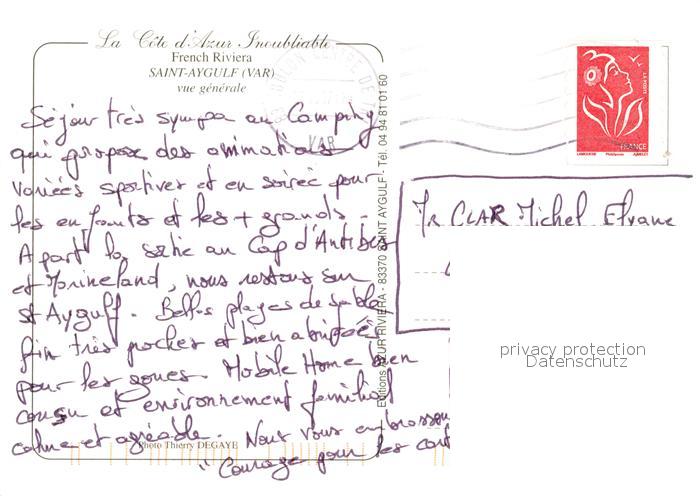 La Côte d'Azur Inoubliable
French Riviera
SAINT-AYGULF (VAR)
vue générale
Séjour très sympa au Camping
qui propose des animations
variées sportives et en soirée pour
les enfants et les + grands.
A part la sortie au Cap d'Antibes
et Marineland, nous restons sur
St Aygulf. Belles plages de sable
fin très proches et bien abritées
pour les gones. Mobile Home bien
conçu et environnement familial
calme et agréable. Nous vous embrassons
"Courage pour les cart
Photo Thierry DEGAYE
Editions AZUR RIVIERA - 83370 SAINT AYGULF - Tél. 04 94 81 01 60
VAR
LA POSTE
FRANCE
Mr CLAR Michel
privacy protection
Datenschutz